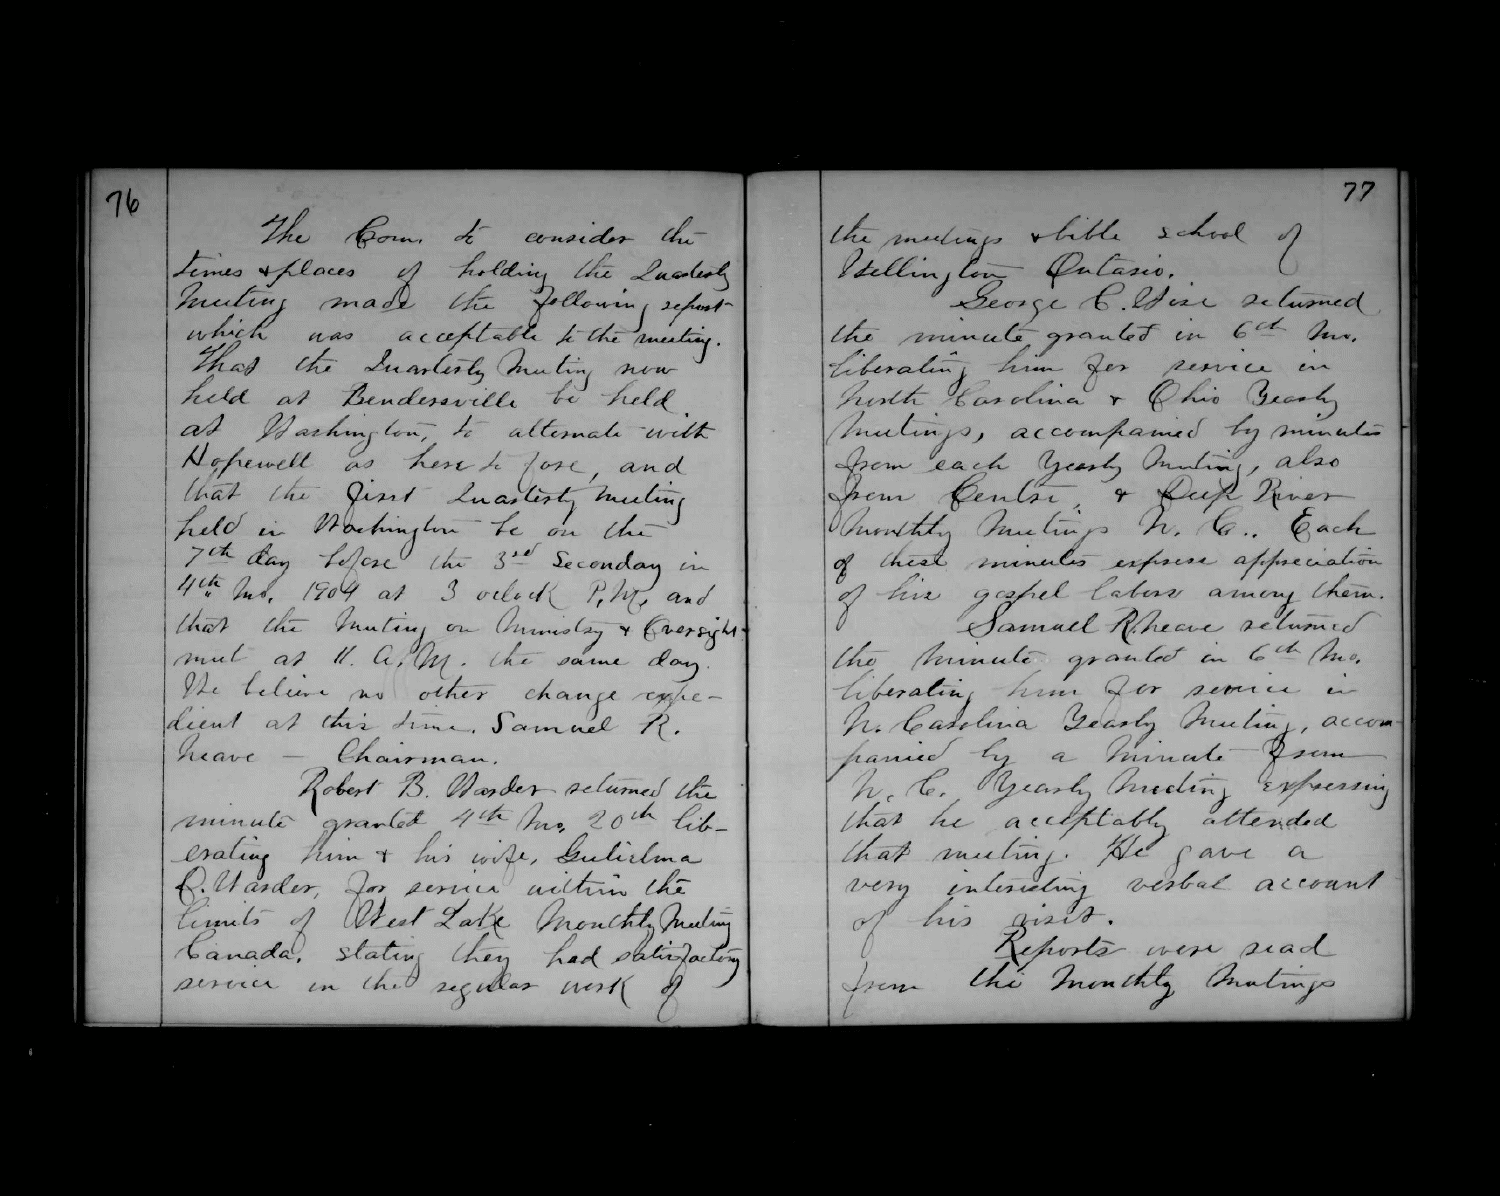 76
The Com. to consider the
times & places of holding the Quarterly
Meeting made the following report
which was acceptable to the meeting.
That the Quarterly Meeting now
held at Bendersville be held
at Washington, to alternate with
Hopewell as here to fore, and
that the first Quarterly Meeting
held in Washington be on the
7th day before the 3rd Seconday in
4th Mo. 1904 at 3 oclock P.M. and
that the Meeting on Ministry & Oversight
meet at 11. A.M. the same day.
We believe no other change expe-
dient at this time. Samuel R.
Neave - Chairman.
Robert B. Warder returned the
minute granted 4th Mo. 20th lib-
erating him & his wife, Gulielma
D. Warder, for service within the
limits of West Lake Monthly Meeting
Canada, stating they had satisfactory
service in the regular work of
77
the meetings & bible school of
Wellington Ontario.
George C. Wise returned
the minute granted in 6th Mo.
liberating him for service in
North Carolina & Ohio Yearly
Meetings, accompanied by minutes
from each Yearly Meeting, also
from Centre, & Deep River
Monthly Meetings N. C.. Each
of these minutes express appreciation
of his gospel labors among them.
Samuel R. Neave returned
the minute granted in 6th Mo.
liberating him for service in
N. Carolina Yearly Meeting, accom-
panied by a minute from
N. C. Yearly Meeting expressing
that he acceptably attended
that meeting. He gave a
very interesting verbal account
of his visit.
Reports were read
from the Monthly Meetings